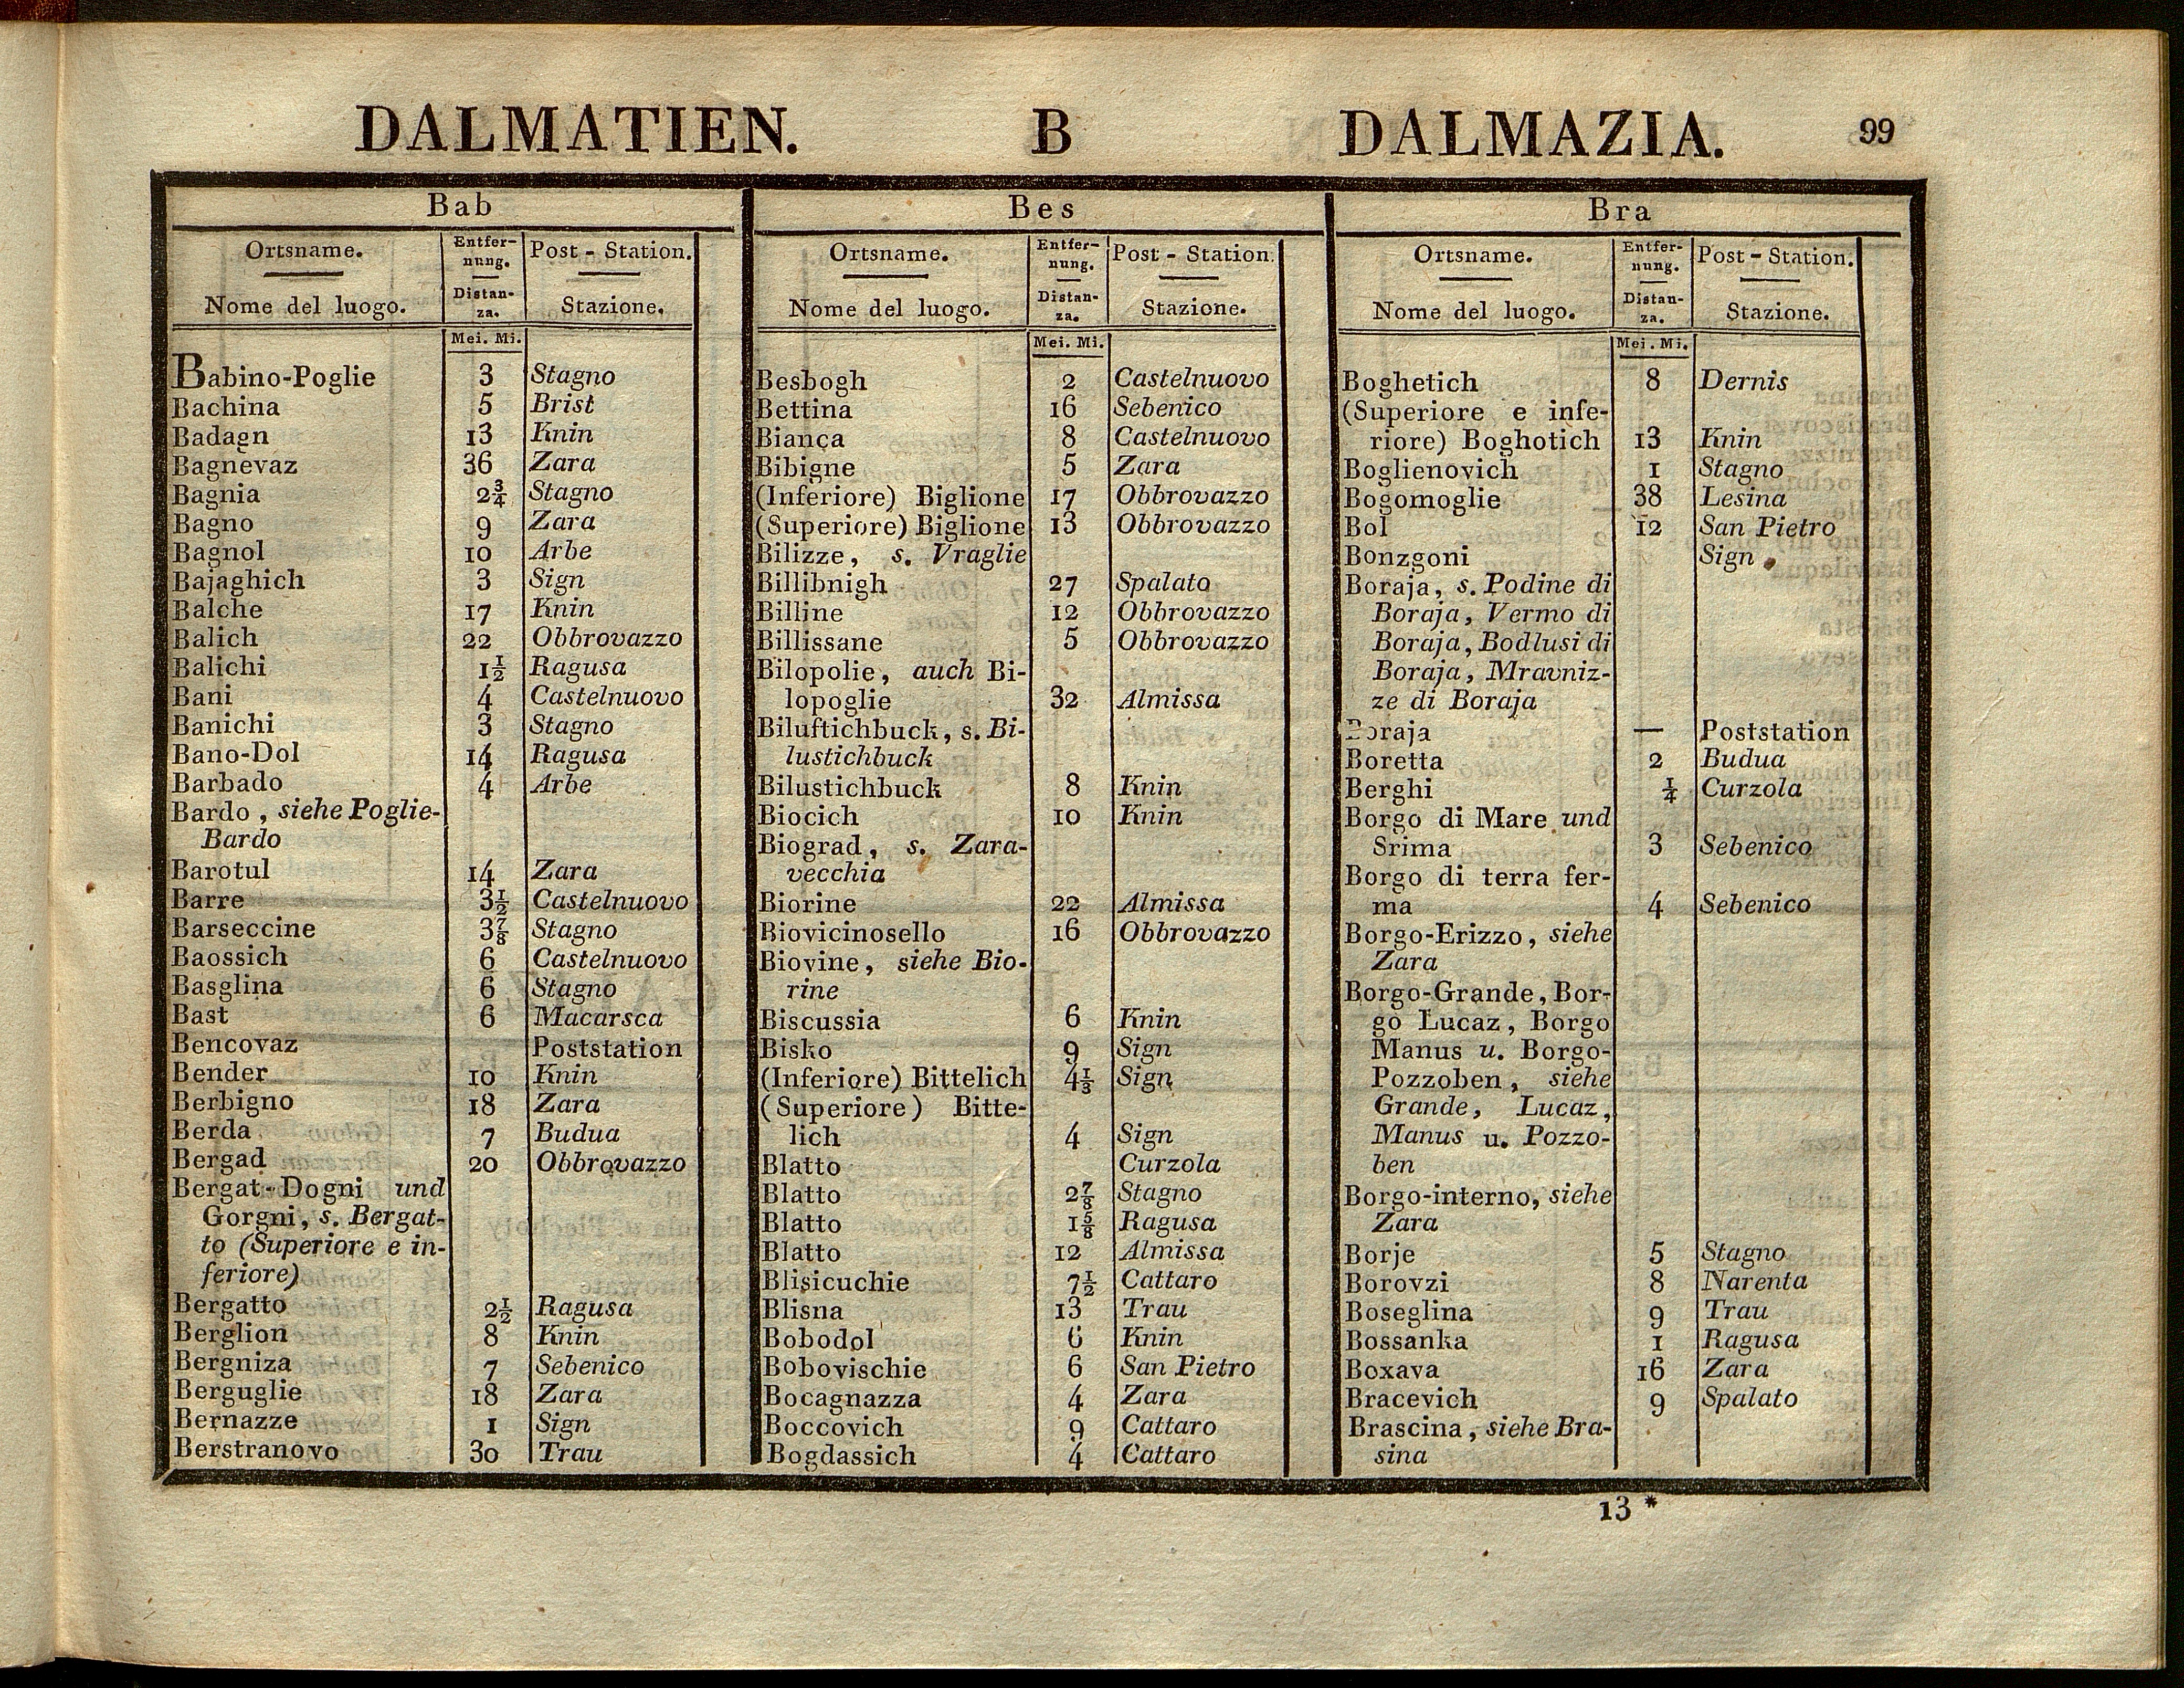 DALMATIEN. B DALMAZIA. 99
Bab
Ortsname. Entfer- Post - Station.
nung.
Nome del luogo. Distan- Stazione.
za.
Mei. Mi.
Babino-Poglie 3 Stagno
Bachina 5 Brist
Badagn 13 Knin
Bagnevaz 36 Zara
Bagnia 2¾ Stagno
Bagno 9 Zara
Bagnol 10 Arbe
Bajaghich 3 Sign
Balche 17 Knin
Balich 22 Obbrovazzo
Balichi 1½ Ragusa
Bani 4 Castelnuovo
Banichi 3 Stagno
Bano-Dol 14 Ragusa
Barbado 4 Arbe
Bardo, siehe Poglie-
Bardo
Barotul 14 Zara
Barre 3½ Castelnuovo
Barseccine 3⅞ Stagno
Baossich 6 Castelnuovo
Basglina 6 Stagno
Bast 6 Macarsca
Bencovaz Poststation
Bender 10 Knin
Berbigno 18 Zara
Berda 7 Budua
Bergad 20 Obbrovazzo
Bergat-Dogni und
Gorgni, s. Bergat-
to (Superiore e in-
feriore)
Bergatto 2½ Ragusa
Berglion 8 Knin
Bergniza 7 Sebenico
Berguglie 18 Zara
Bernazze 1 Sign
Berstranovo 30 Trau
Bes
Ortsname. Entfer- Post - Station.
nung.
Nome del luogo. Distan- Stazione.
za.
Mei. Mi.
Besbogh 2 Castelnuovo
Bettina 16 Sebenico
Bianca 8 Castelnuovo
Bibigne 5 Zara
(Inferiore) Biglione 17 Obbrovazzo
(Superiore) Biglione 13 Obbrovazzo
Bilizze, s. Vraglie
Billibnigh 27 Spalato
Billine 12 Obbrovazzo
Billissane 5 Obbrovazzo
Bilopolie, auch Bi-
lopoglie 32 Almissa
Biluftichbuck, s. Bi-
lustichbuck
Bilustichbuck 8 Knin
Biocich 10 Knin
Biograd, s. Zara-
vecchia
Biorine 22 Almissa
Biovicinosello 16 Obbrovazzo
Biovine, siehe Bio-
rine
Biscussia 6 Knin
Bisko 9 Sign
(Inferiore) Bittelich 4⅓ Sign
(Superiore) Bitte-
lich 4 Sign
Blatto Curzola
Blatto 2⅞ Stagno
Blatto 1⅝ Ragusa
Blatto 12 Almissa
Blisicuchie 7½ Cattaro
Blisna 13 Trau
Bobodol 6 Knin
Bobovischie 6 San Pietro
Bocagnazza 4 Zara
Boccovich 9 Cattaro
Bogdassich 4 Cattaro
Bra
Ortsname. Entfer- Post - Station.
nung.
Nome del luogo. Distan- Stazione.
za.
Mei. Mi.
Boghetich 8 Dernis
(Superiore e infe-
riore) Boghotich 13 Knin
Boglienovich 1 Stagno
Bogomoglie 38 Lesina
Bol 12 San Pietro
Bonzgoni Sign
Boraja, s. Podine di
Boraja, Vermo di
Boraja, Bodlusi di
Boraja, Mravniz-
ze di Boraja
Boraja — Poststation
Boretta 2 Budua
Berghi ¼ Curzola
Borgo di Mare und
Srima 3 Sebenico
Borgo di terra fer-
ma 4 Sebenico
Borgo-Erizzo, siehe
Zara
Borgo-Grande, Bor-
go Lucaz, Borgo
Manus u. Borgo-
Pozzoben, siehe
Grande, Lucaz,
Manus u. Pozzo-
ben
Borgo-interno, siehe
Zara
Borje 5 Stagno
Borovzi 8 Narenta
Boseglina 9 Trau
Bossanka 1 Ragusa
Boxava 16 Zara
Bracevich 9 Spalato
Brascina, siehe Bra-
sina
13 *